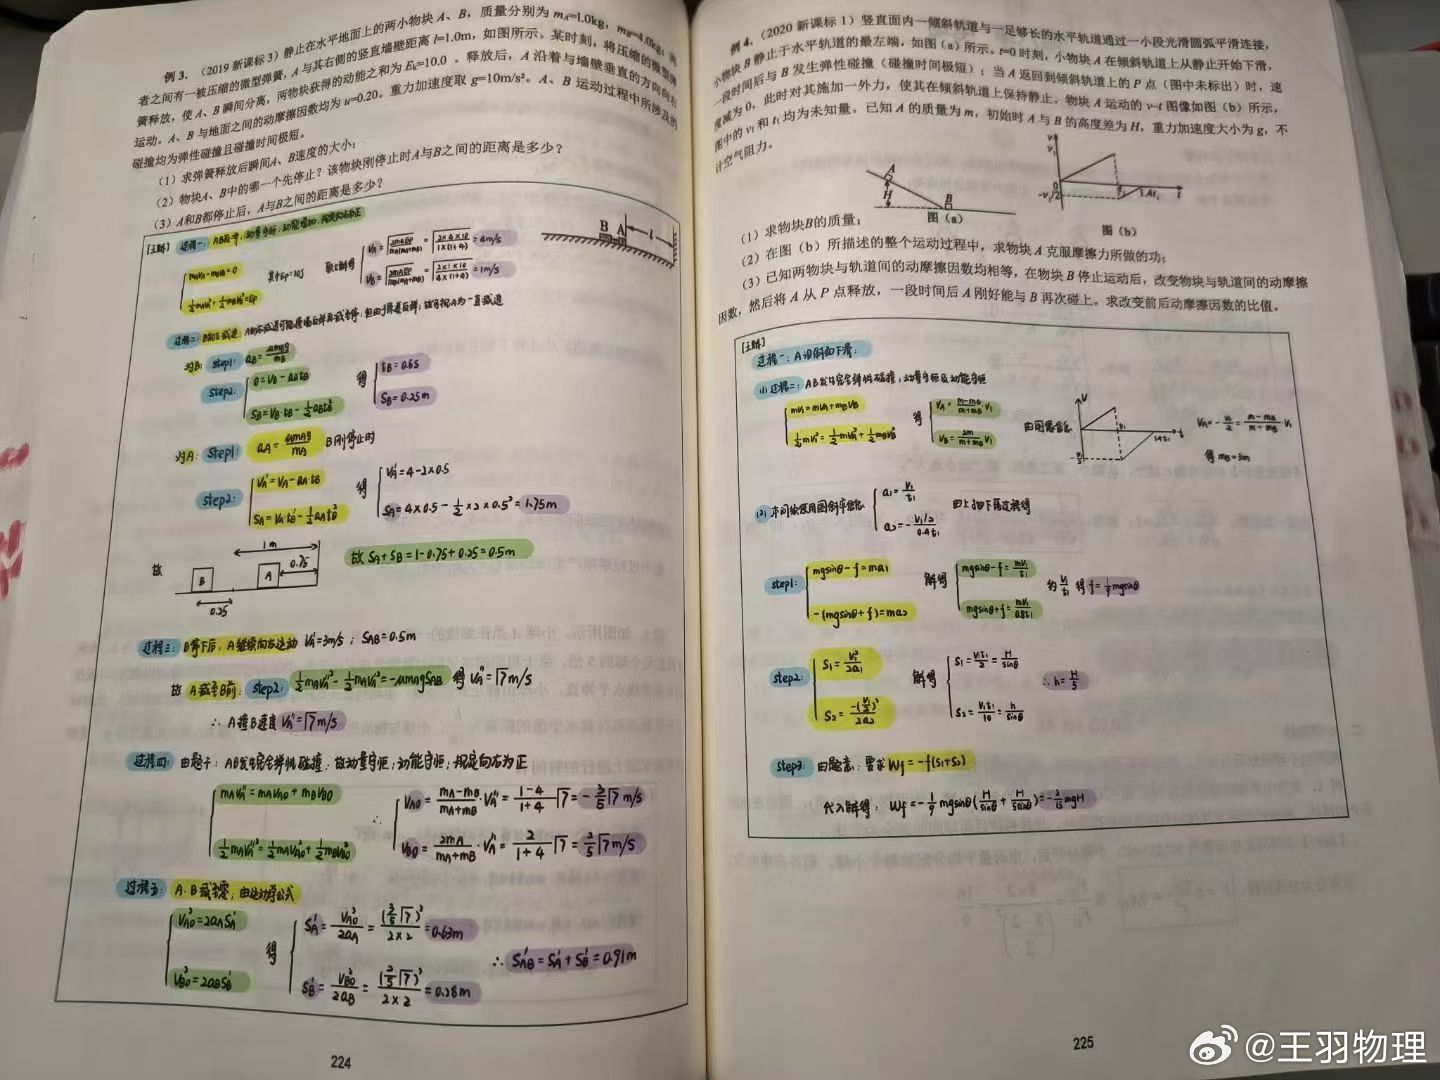 例3.（2019新课标3）静止在水平地面上的两小物块 A、B，质量分别为 mA=1.0kg，mB=4.0kg；两
者之间有一被压缩的微型弹簧，A与其右侧的竖直墙壁距离 l=1.0m，如图所示。某时刻，将压缩的微型弹
簧释放，使 A、B 瞬间分离，两物块获得的动能之和为 Ek=10.0 。释放后，A 沿着与墙壁垂直的方向向右
运动。A、B 与地面之间的动摩擦因数均为 u=0.20。重力加速度取 g=10m/s²。A、B 运动过程中所涉及的
碰撞均为弹性碰撞且碰撞时间极短。
（1）求弹簧释放后瞬间A、B速度的大小；
（2）物块A、B中的哪一个先停止？该物块刚停止时A与B之间的距离是多少？
（3）A和B都停止后，A与B之间的距离是多少？
[主解] 过程一：
mAVA-mBVB=0
½mAVA²+½mBVB²=Ep
其中Ep=10J
联立解得
VA=√(2mBEp/mA(mA+mB))=√(2×4×10/1×(1+4))=4m/s
VB=√(2mAEp/mB(mA+mB))=√(2×1×10/4×(1+4))=1m/s
B A l
对B: step1: aB=μmBg/mB
step2: 0=VB-aBtB
SB=VB·tB-½aBtB²
得 tB=0.5s
SB=0.25m
对A: step1: aA=μmAg/mA B刚停止时
step2: VA'=VA-aA·tB
得 VA'=4-2×0.5
SA=4×0.5-½×2×0.5²=1.75m
1m
故 B A 0.75
0.25
故 SA+SB=1-0.75+0.25=0.5m
过程三: B停下后，A继续向左运动 VA'=3m/s；SAB=0.5m
故 A碰B前: step2: ½mAVA''²-½mAVA'²=-μmAgSAB 得 VA''=√7m/s
∴ A撞B速度 VA''=√7m/s
过程四: 由题干：AB发生完全弹性碰撞，故动量守恒，动能守恒；规定向右为正
mAVA''=mAVA0+mBVB0
½mAVA''²=½mAVA0²+½mBVB0²
∴ VA0=(mA-mB)/(mA+mB)·VA''=(1-4)/(1+4)√7=-3/5√7m/s
VB0=2mA/(mA+mB)·VA''=2/(1+4)√7=2/5√7m/s
过程五: A、B减至零，由运动学公式
VA0²=2aASA'
VB0²=2aBSB'
得 SA'=VA0²/2aA=(3/5√7)²/(2×2)=0.63m
SB'=VB0²/2aB=(2/5√7)²/(2×2)=0.28m
∴ SAB'=SA'+SB'=0.91m
224
例4.（2020新课标1）竖直面内一倾斜轨道与一足够长的水平轨道通过一小段光滑圆弧平滑连接，
小物块 B 静止于水平轨道的最左端，如图（a）所示。t=0时刻，小物块 A 在倾斜轨道上从静止开始下滑，
一段时间后与 B 发生弹性碰撞（碰撞时间极短）；当 A 返回到倾斜轨道上的 P 点（图中未标出）时，速
度减为 0，此时对其施加一外力，使其在倾斜轨道上保持静止。物块 A 运动的 v-t 图像如图（b）所示，
图中的 v1 和 t1 均为未知量。已知 A 的质量为 m，初始时 A 与 B 的高度差为 H，重力加速度大小为 g，不
计空气阻力。
A H B
图（a）
v v1 0 -v1/2 t1 1.4t1 t
图（b）
（1）求物块B的质量；
（2）在图（b）所描述的整个运动过程中，求物块 A 克服摩擦力所做的功；
（3）已知两物块与轨道间的动摩擦因数均相等，在物块 B 停止运动后，改变物块与轨道间的动摩擦
因数，然后将 A 从 P 点释放，一段时间后 A 刚好能与 B 再次碰上。求改变前后动摩擦因数的比值。
[主解]
过程一：A沿斜面下滑：
(1) 过程二：AB发生完全弹性碰撞，动量守恒及动能守恒
mV1=mVA+mBVB
½mV1²=½mVA²+½mBVB²
得 VA=(m-mB)/(m+mB) V1
VB=2m/(m+mB) V1
VA=-V1/2=(m-mB)/(m+mB) V1
得 mB=3m
a1=V1/t1
a2=-(V1/2)/0.4t1
step1: mgsinθ-f=ma1
-(mgsinθ+f)=ma2
解得 mgsinθ-f=mV1/t1
mgsinθ+f=mV1/0.8t1
约V1/t1 得 f=1/9mgsinθ
step2: S1=V1²/2a1
S2=-(V1/2)²/2a2
解得 S1=V1t1/2=H/sinθ
S2=V1t1/10=h/sinθ
∴h=H/5
step3: 由题意：要求Wf=-f(S1+S2)
代入解得：
225
@王羽物理